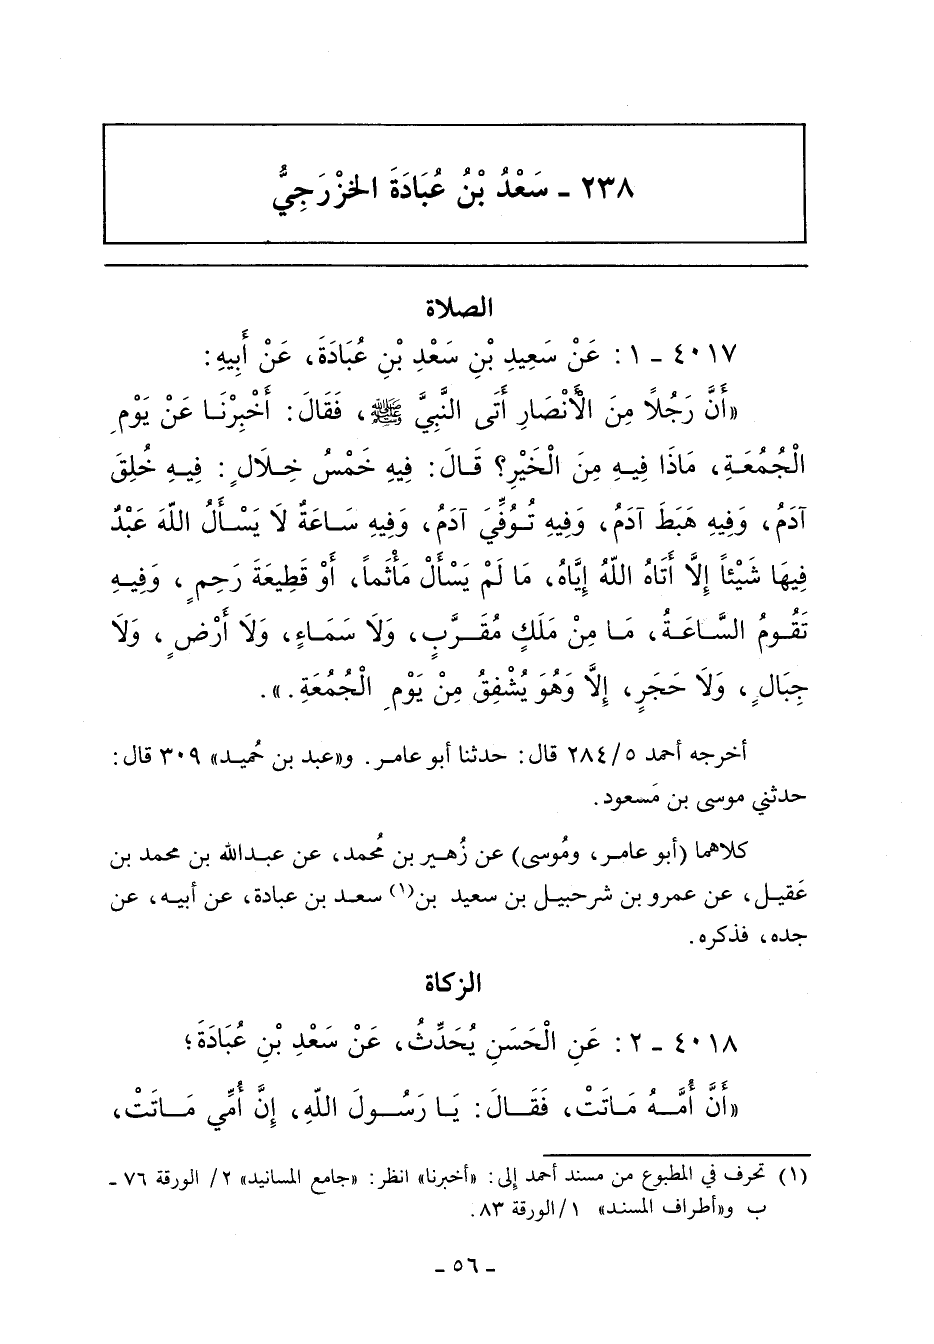 ٢٣٨ - سَعْدُ بْنُ عُبَادَةَ الخَزْرَجِيُّ
الصلاة
٤٠١٧ - ١: عَنْ سَعِيدِ بْنِ سَعْدِ بْنِ عُبَادَةَ، عَنْ أَبِيهِ:
«أَنَّ رَجُلًا مِنَ الْأَنْصَارِ أَتَى النَّبِيَّ ﷺ، فَقَالَ: أَخْبِرْنَا عَنْ يَوْمِ
الْجُمُعَةِ، مَاذَا فِيهِ مِنَ الْخَيْرِ؟ قَالَ: فِيهِ خَمْسُ خِلَالٍ: فِيهِ خُلِقَ
آدَمُ، وَفِيهِ هَبَطَ آدَمُ، وَفِيهِ تُوُفِّيَ آدَمُ، وَفِيهِ سَاعَةٌ لَا يَسْأَلُ اللّهَ عَبْدٌ
فِيهَا شَيْئاً إِلَّا أَتَاهُ اللّهُ إِيَّاهُ، مَا لَمْ يَسْأَلْ مَأْثَماً، أَوْ قَطِيعَةَ رَحِمٍ، وَفِيهِ
تَقُومُ السَّاعَةُ، مَا مِنْ مَلَكٍ مُقَرَّبٍ، وَلَا سَمَاءٍ، وَلَا أَرْضٍ، وَلَا
جِبَالٍ، وَلَا حَجَرٍ، إِلَّا وَهُوَ يُشْفِقُ مِنْ يَوْمِ الْجُمُعَةِ.».
أخرجه أحمد ٢٨٤/٥ قال: حدثنا أبو عامر. و«عبد بن حُميد» ٣٠٩ قال:
حدثني موسى بن مَسعود.
كلاهما (أبو عامر، ومُوسى) عن زُهير بن مُحمد، عن عبدالله بن محمد بن
عَقيل، عن عمرو بن شرحبيل بن سعيد بن(١) سعد بن عبادة، عن أبيه، عن
جده، فذكره.
الزكاة
٤٠١٨ - ٢: عَنِ الْحَسَنِ يُحَدِّثُ، عَنْ سَعْدِ بْنِ عُبَادَةَ؛
«أَنَّ أُمَّهُ مَاتَتْ، فَقَالَ: يَا رَسُولَ اللّهِ، إِنَّ أُمِّي مَاتَتْ،
(١) تحرف في المطبوع من مسند أحمد إلى: «أخبرنا» انظر: «جامع المسانيد» ٢/ الورقة ٧٦ -
ب و«أطراف المسند» ١/الورقة ٨٣.
- ٥٦ -